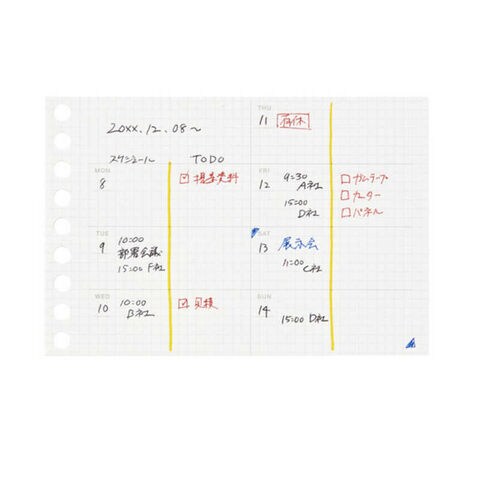 20xx.12.08〜
スケジュール TODO
MON
8
☑ 提案資料
TUE
9
10:00
部署会議
15:00 F社
WED
10
10:00
B社
☑ 見積
THU
11
有休
FRI
12
9:30
A社
15:00
D社
□ ガムテープ
□ カッター
□ パネル
SAT
13
展示会
11:00
C社
SUN
14
15:00 D社